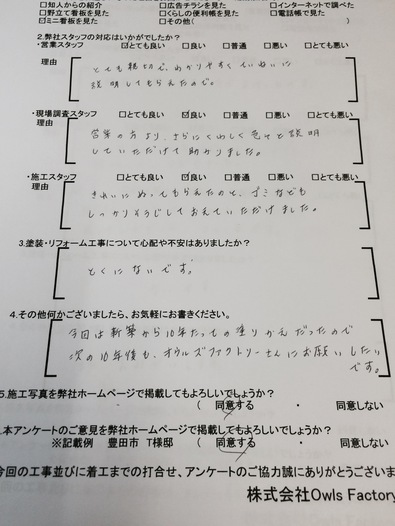 □知人からの紹介 □広告チラシを見た □インターネットで調べた
□野立て看板を見た □くらしの便利帳を見た □電話帳で見た
☑ミニ看板を見た □その他( )
2.弊社スタッフの対応はいかがでしたか?
・営業スタッフ ☑とても良い □良い □普通 □悪い □とても悪い
理由
とても親切で、わかりやすくていねいに
説明してもらえたので。
・現場調査スタッフ □とても良い ☑良い □普通 □悪い □とても悪い
理由
営業の方より、さらにくわしく色々と説明
していただけて助かりました。
・施工スタッフ □とても良い ☑良い □普通 □悪い □とても悪い
理由
きれいにぬってもらえたのと、ゴミなども
しっかりそうじしておえていただけました。
3.塗装・リフォーム工事について心配や不安はありましたか?
とくにないです。
4.その他何かございましたら、お気軽にお書きください。
今回は新築から10年たっての塗りかえだったので
次の10年後も、オウルズファクトリーさんにお願いしたい
です。
5.施工写真を弊社ホームページで掲載してもよろしいでしょうか?
( 同意する ・ 同意しない
本アンケートのご意見を弊社ホームページで掲載してもよろしいでしょうか?
※記載例 豊田市 T様邸 ( 同意する ・ 同意しない
今回の工事並びに着工までの打合せ、アンケートのご協力誠にありがとうございま
株式会社Owls Factory